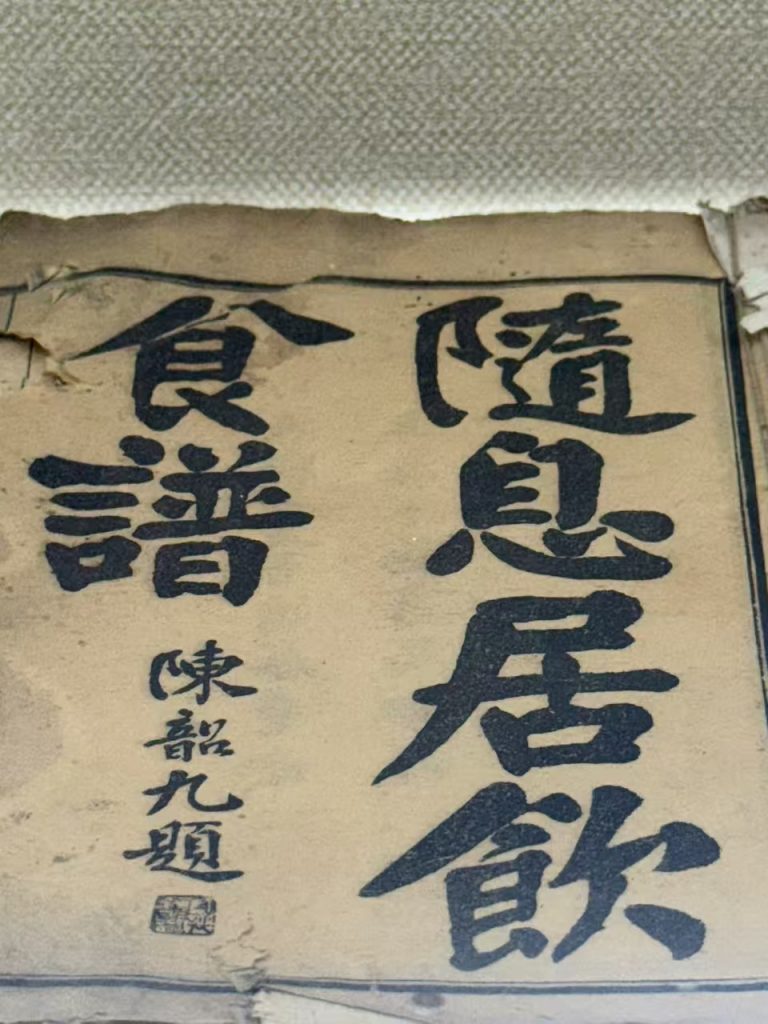 隨息居飲
食譜
陳韶九題